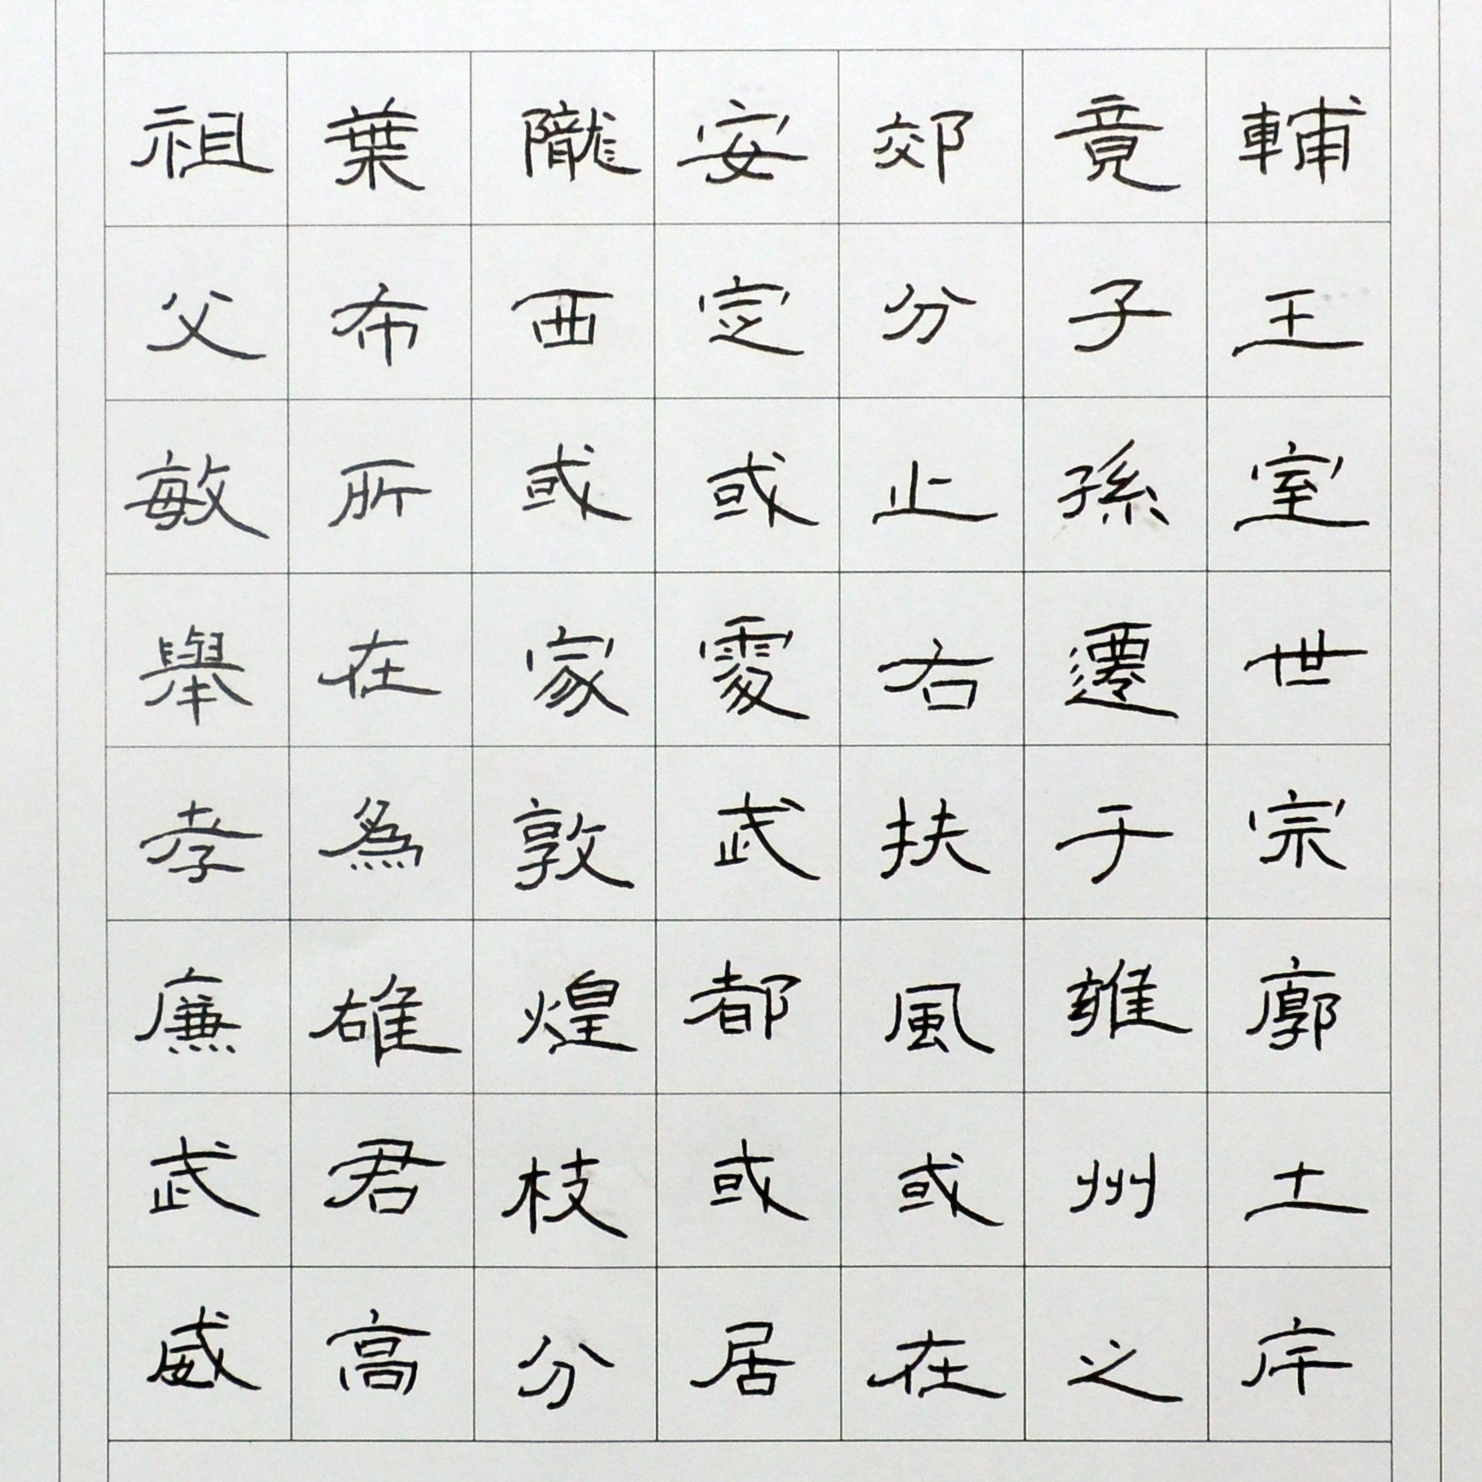 輔王室世宗廓土斥
竟子孫遷于雍州之
郊分止右扶風或在
安定或處武都或居
隴西或家敦煌枝分
葉布所在為雄君高
祖父敏舉孝廉武威